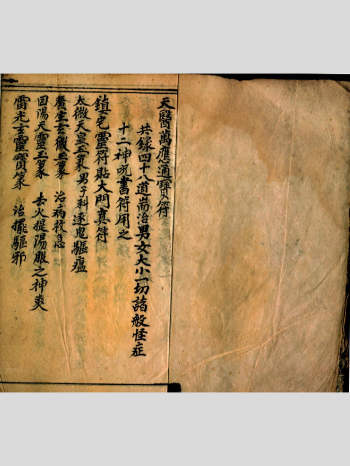 天醫萬應通寶符
共錄四十八道崙治男女大小一切諸般怪症
十二神咒書符用之
鎮宅靈符點大門真符
太微天皇玉篆男子科逐鬼驅瘟
廣生玄微玉篆 治病救急
回陽天靈玉篆 去火提湯服之神爽
雷光玄靈寶篆 治擺驅邪